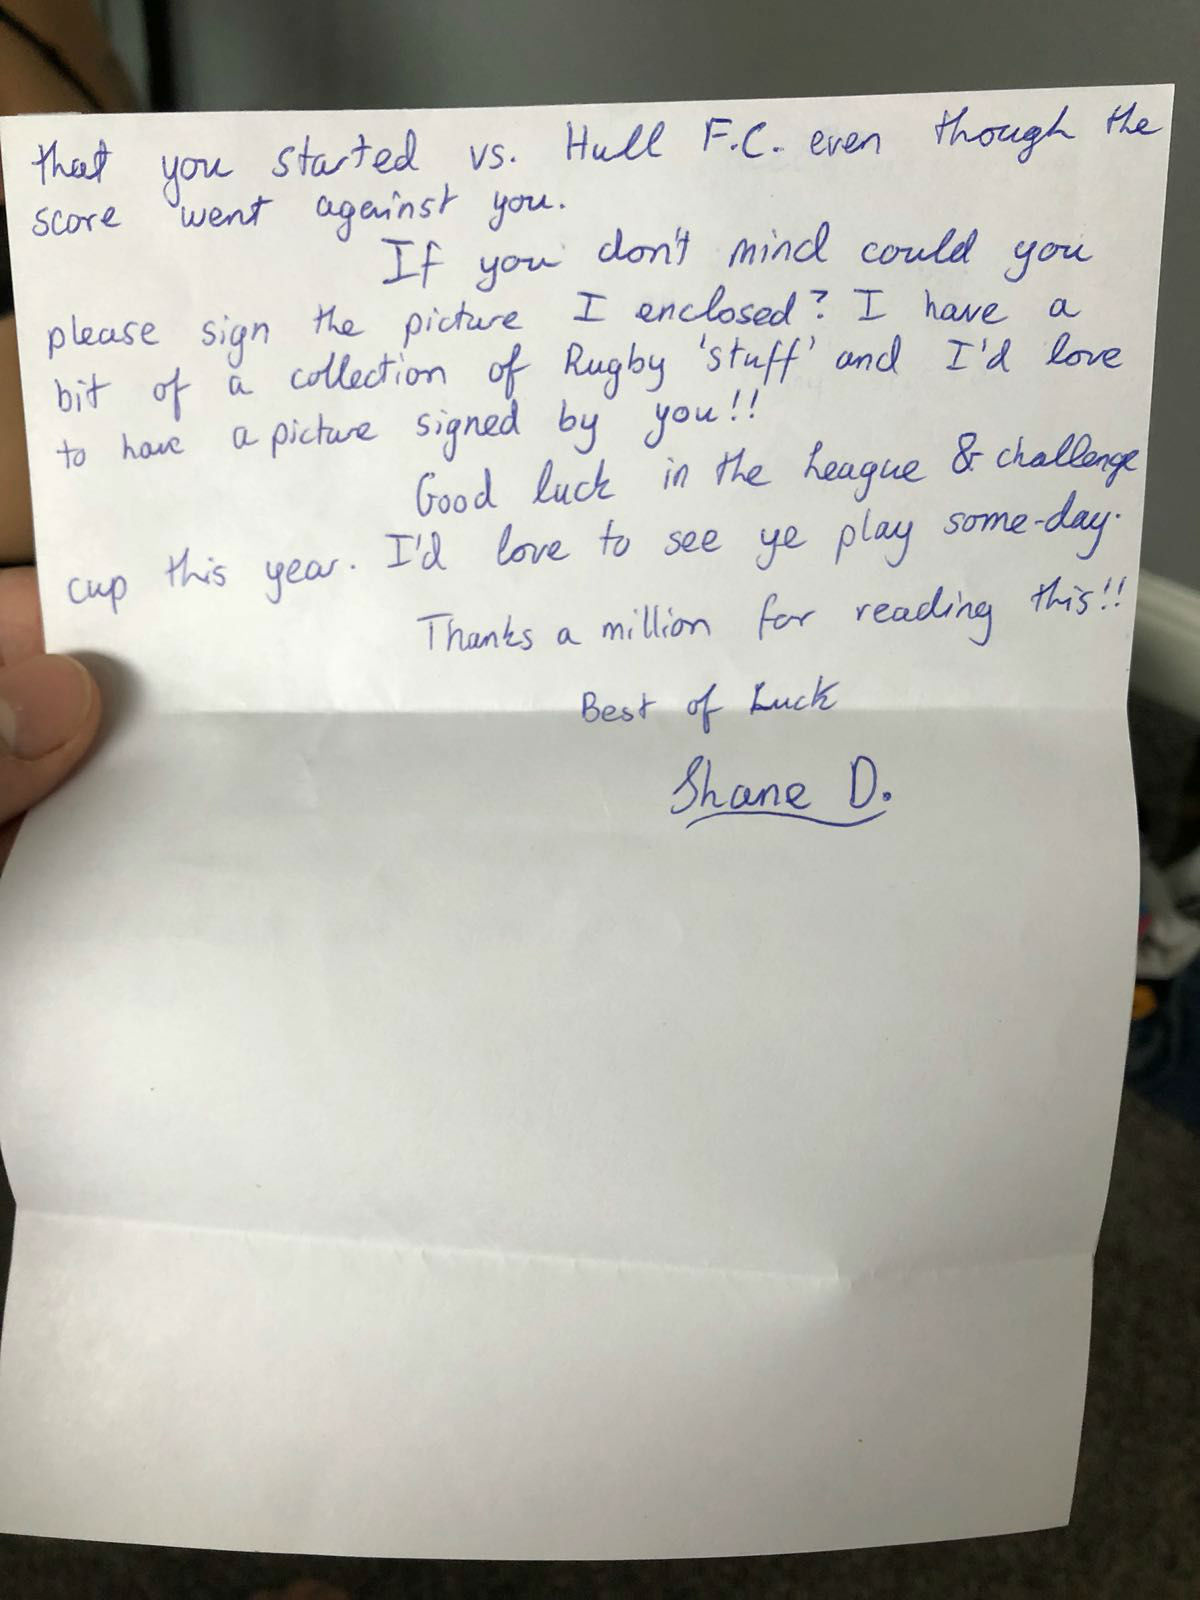 that you started vs. Hull F.C. even though the
score went against you.
If you don't mind could you
please sign the picture I enclosed? I have a
bit of a collection of Rugby 'stuff' and I'd love
to have a picture signed by you!!
Good luck in the League & challenge
cup this year. I'd love to see ye play some-day.
Thanks a million for reading this!!
Best of Luck
Shane D.